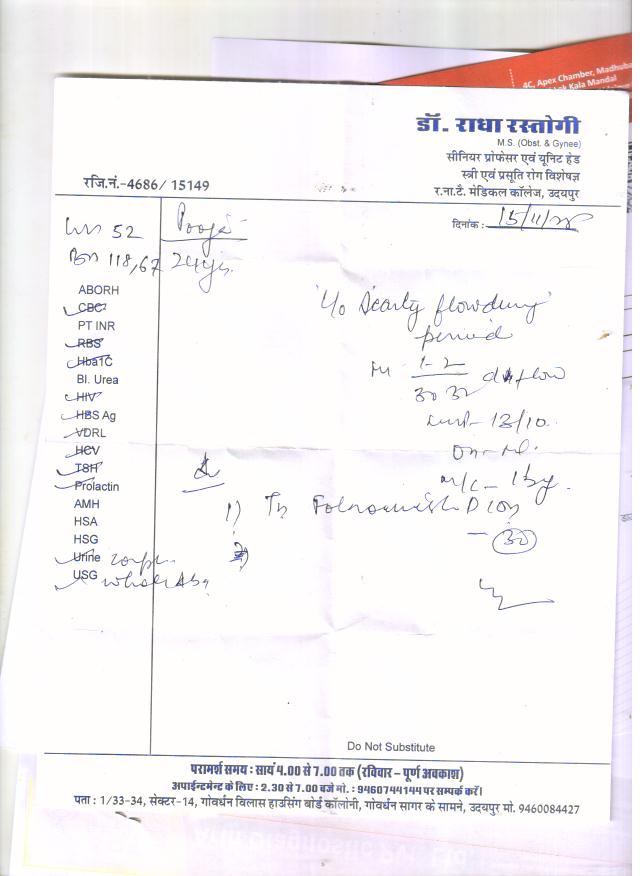 4C, Apex Chamber, Madhuba
Lok Kala Mandal
डॉ. राधा रस्तोगी
M.S. (Obst. & Gynee)
सीनियर प्रोफेसर एवं यूनिट हेड
स्त्री एवं प्रसूति रोग विशेषज्ञ
र.ना.टै. मेडिकल कॉलेज, उदयपुर
रजि.नं.-4686/ 15149
दिनांक : 15/11/
52
Pooja
118/67 24 yrs.
ABORH
CBC
PT INR
RBS
Hba1C
Bl. Urea
HIV
HBS Ag
VDRL
HCV
TSH
Prolactin
AMH
HSA
HSG
Urine
USG whole Abd
period
1-2
30 32
flow
13/10
1)
30
2)
Do Not Substitute
परामर्श समय : सायं 4.00 से 7.00 तक (रविवार – पूर्ण अवकाश)
अपाईन्टमेन्ट के लिए : 2.30 से 7.00 बजे मो. : 9460744144 पर सम्पर्क करें।
पता : 1/33-34, सेक्टर-14, गोवर्धन विलास हाउसिंग बोर्ड कॉलोनी, गोवर्धन सागर के सामने, उदयपुर मो. 9460084427